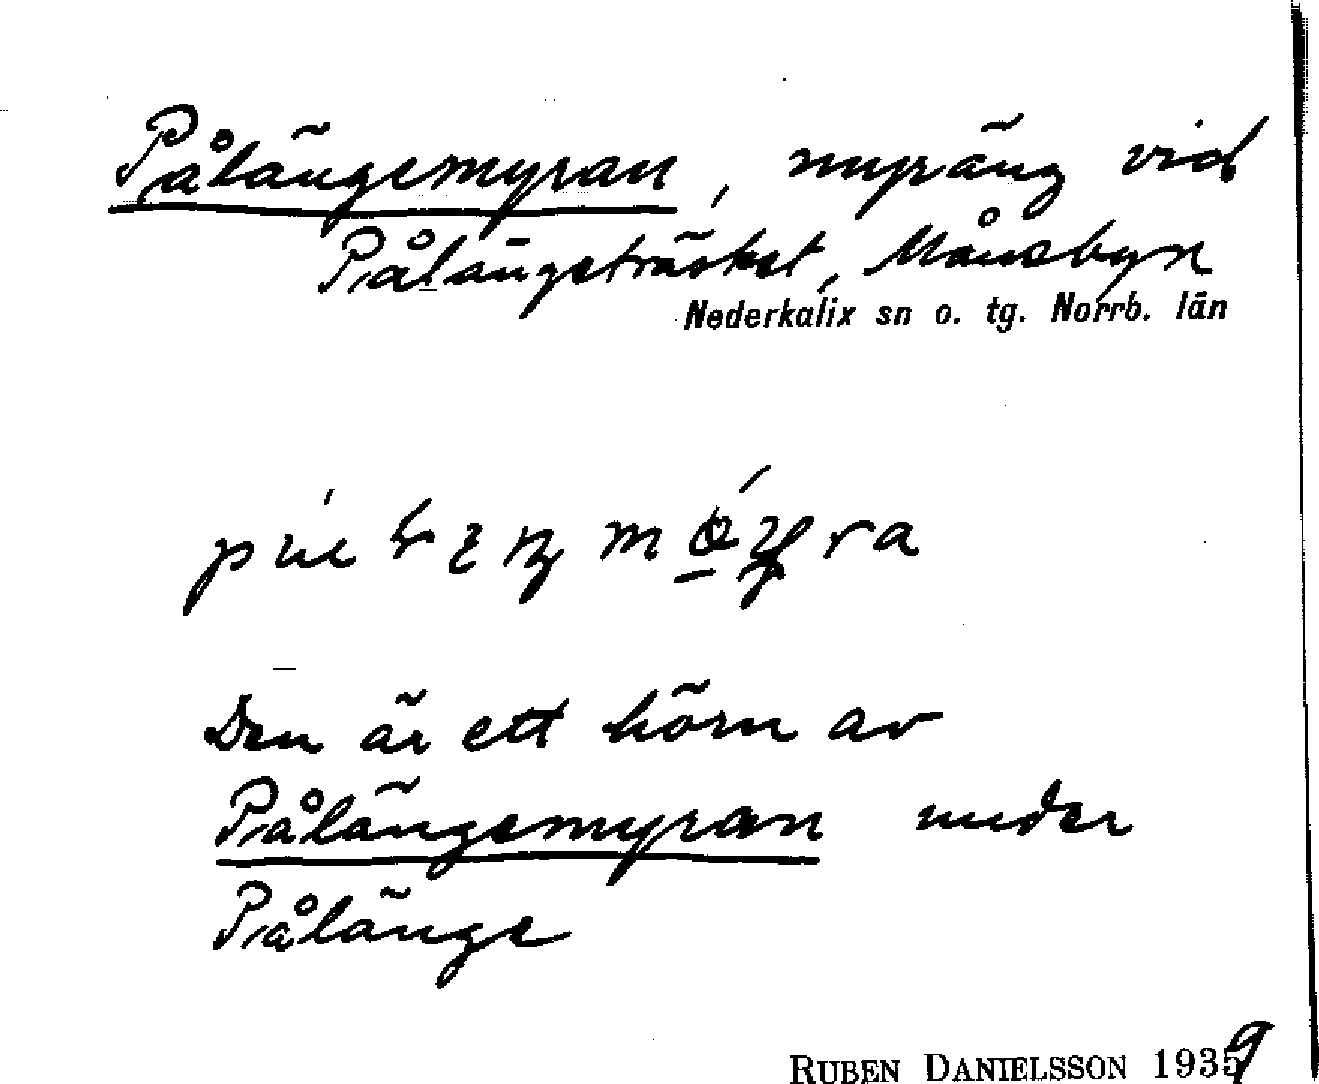 Pålängemyran, myräng vid
Pålängeträsket, Månsbyn
Nederkalix sn o. tg. Norrb. län
Den är ett hörn av
Pålängemyran under
Pålänge
RUBEN DANIELSSON 1939